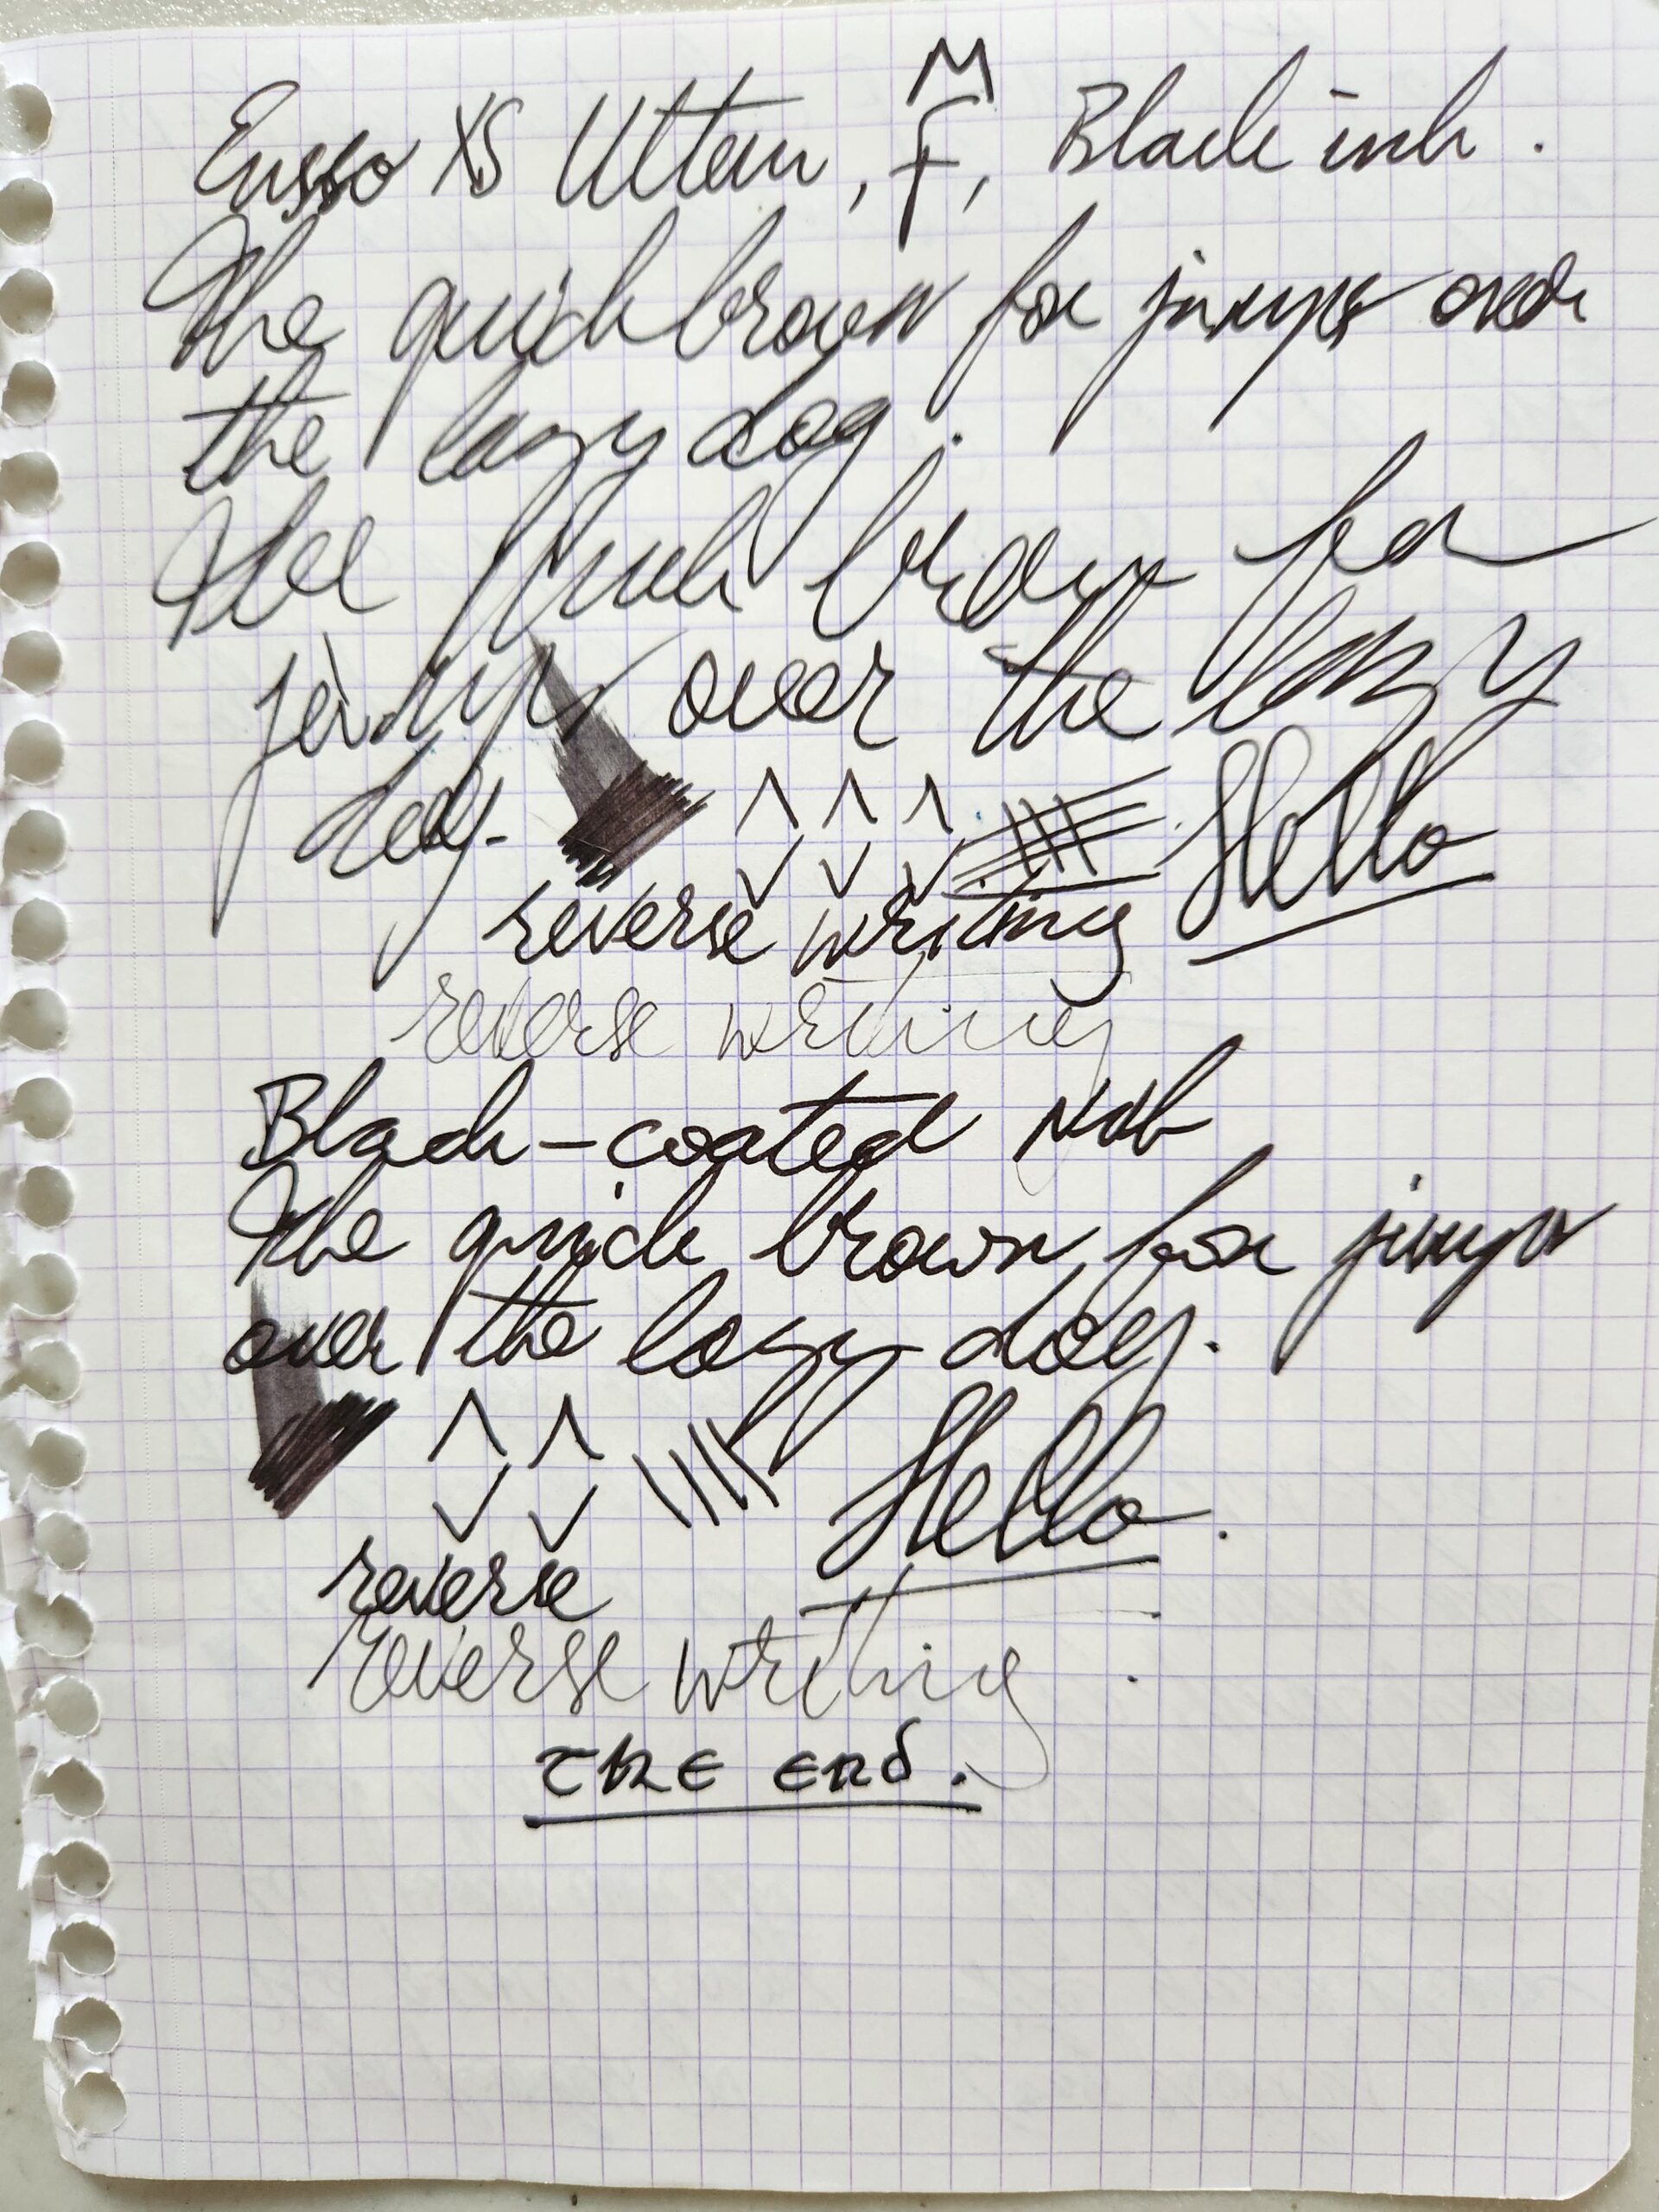 Ensso XS Ultem, F, Black ink.
M
The quick brown fox jumps over
the lazy dog.
The quick brown fox
jumps over the lazy
dog.
Hello
reverse writing
reverse writing
Black-coated Nib
The quick brown fox jumps
over the lazy dog.
Hello.
reverse
reverse writing.
THE END.